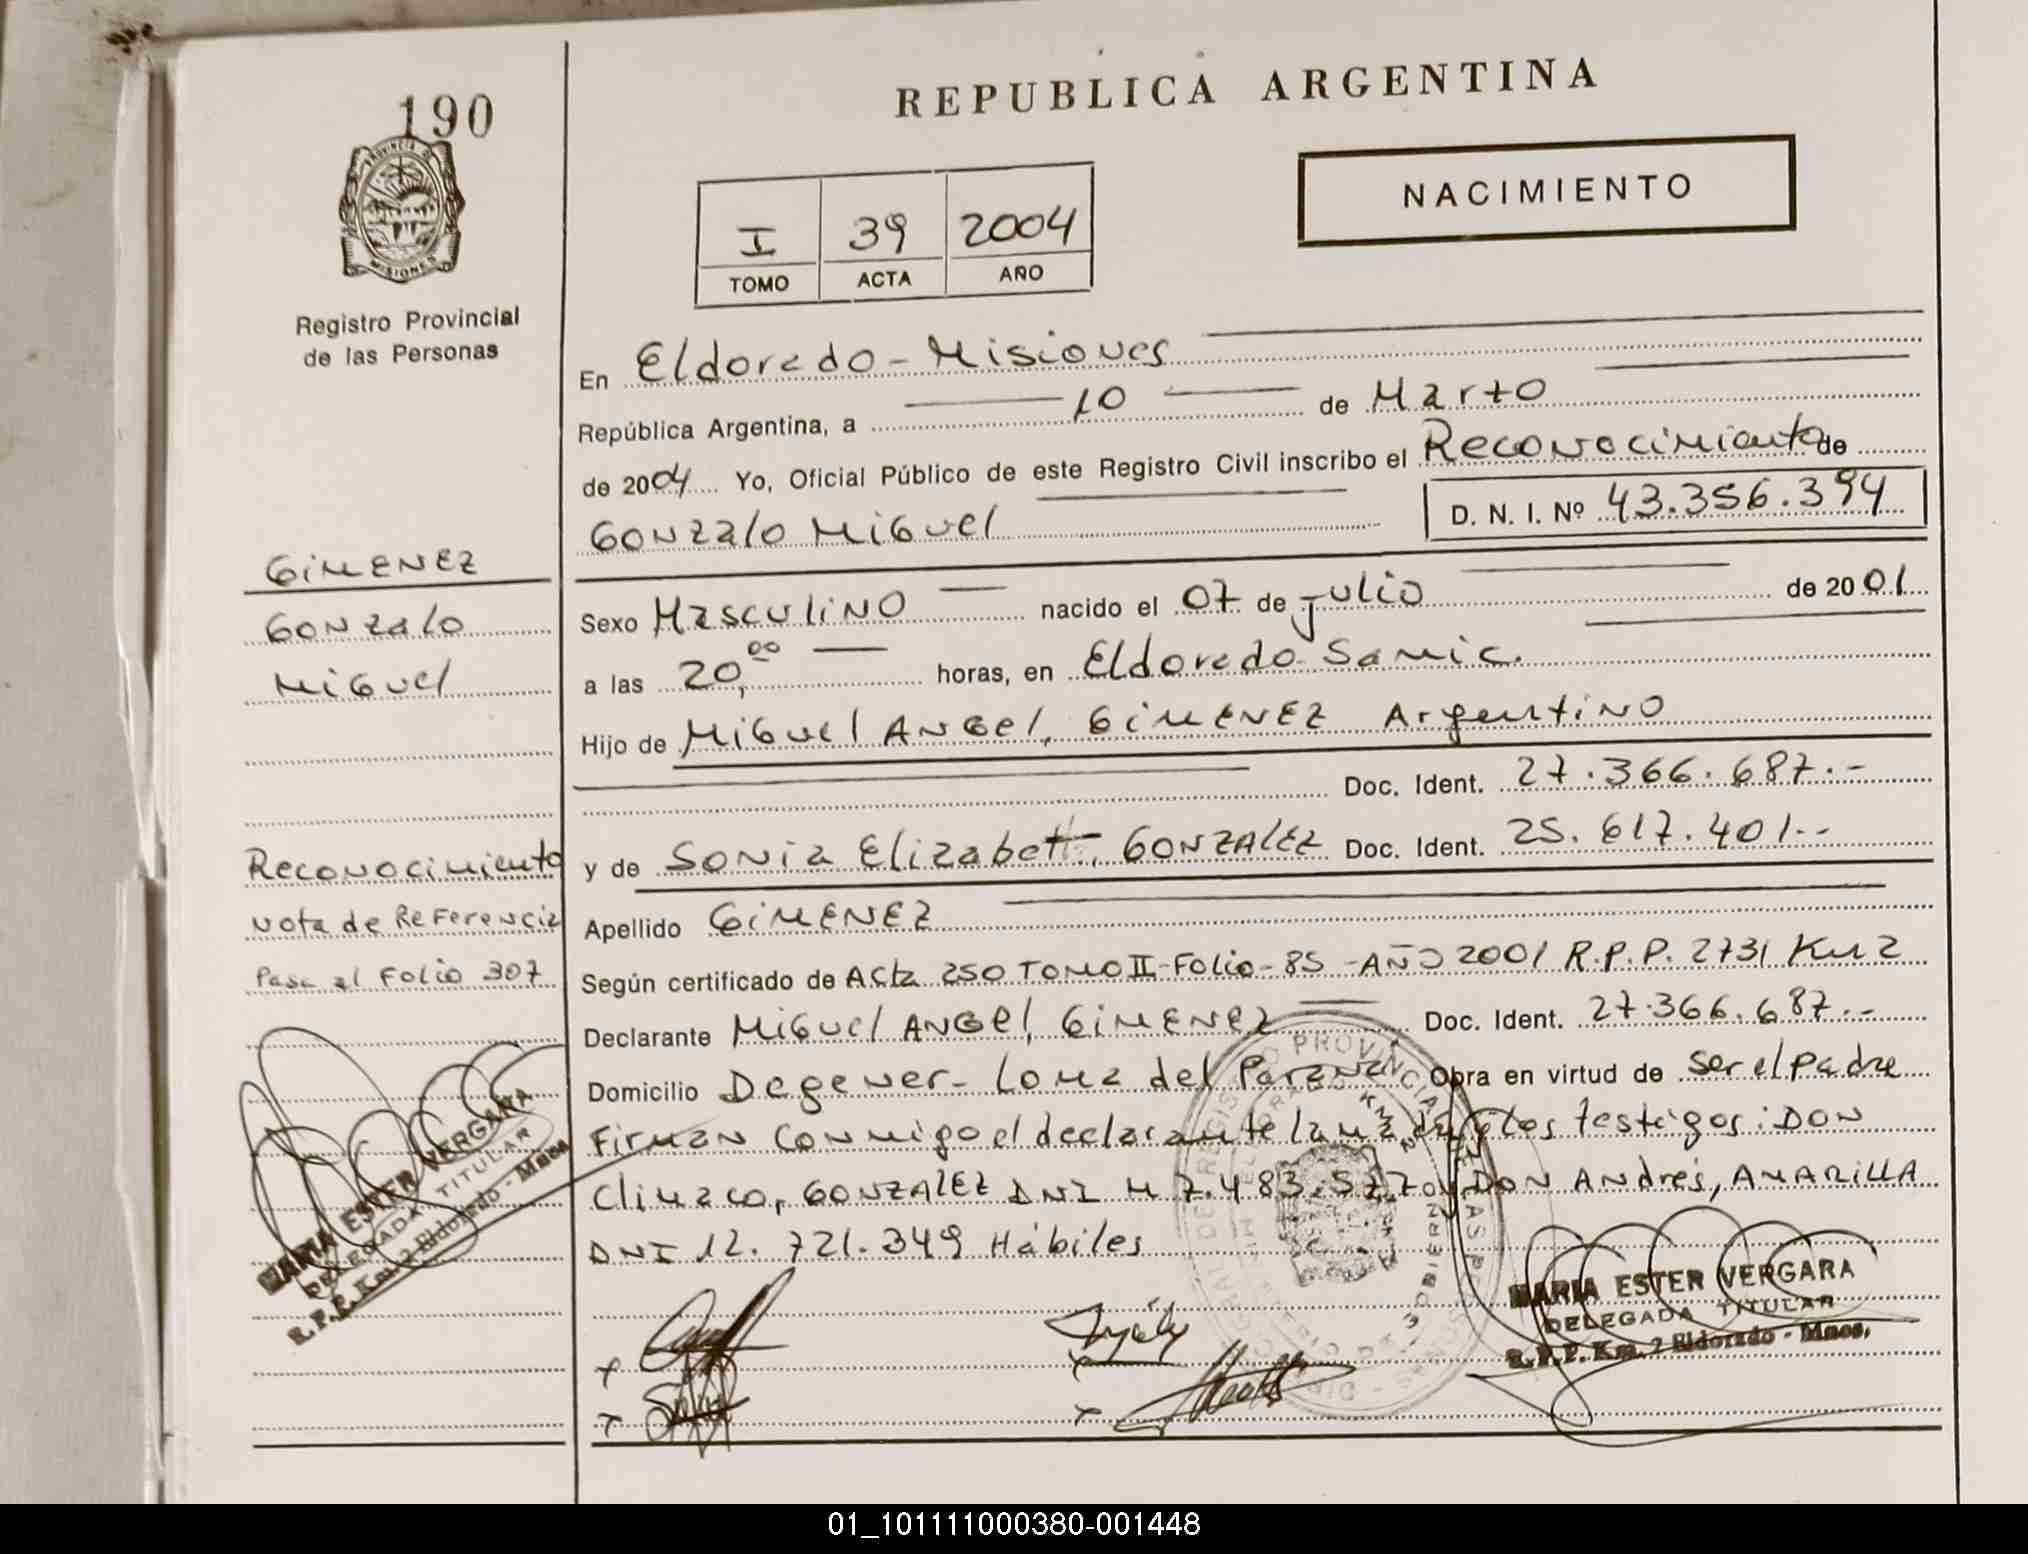 190
PROVINCIA DE
MISIONES
Registro Provincial
de las Personas
REPUBLICA ARGENTINA
NACIMIENTO
I 39 2004
TOMO ACTA AÑO
En Eldorado - Misiones
República Argentina, a 10 de Marzo
de 2004 Yo, Oficial Público de este Registro Civil inscribo el Reconocimiento de
Gonzalo Miguel D. N. I. Nº 43.356.394
Sexo Masculino nacido el 07 de julio de 2001
a las 20,00 horas, en Eldorado Samic.
Hijo de Miguel Angel, GIMENEZ Argentino
Doc. Ident. 27.366.687.-
y de Sonia Elizabett, GONZALEZ Doc. Ident. 25.617.401.--
Apellido GIMENEZ
Según certificado de Acta 250 TOMO II-Folio-85-AÑO 2001 R.P.P. 2731 Km 2
Declarante Miguel Angel, GIMENEZ Doc. Ident. 27.366.687.--
Domicilio Degener - Loma del Paraná Obra en virtud de Ser el padre
Firman conmigo el declarante la madre y los testigos: DON
Climaco, GONZALEZ DNI M 7.483.577 o y DON Andrés, AMARILLA
DNI 12.721.349 Hábiles
GIMENEZ
Gonzalo
Miguel
Reconocimiento
Nota de Referencia
Pasa al Folio 307
MARIA ESTER VERGARA
DELEGADA TITULAR
R.P.P. Km. 2 Eldorado - Mnes.
MARIA ESTER VERGARA
DELEGADA TITULAR
R.P.P. Km. 2 Eldorado - Mnes.
01_101111000380-001448